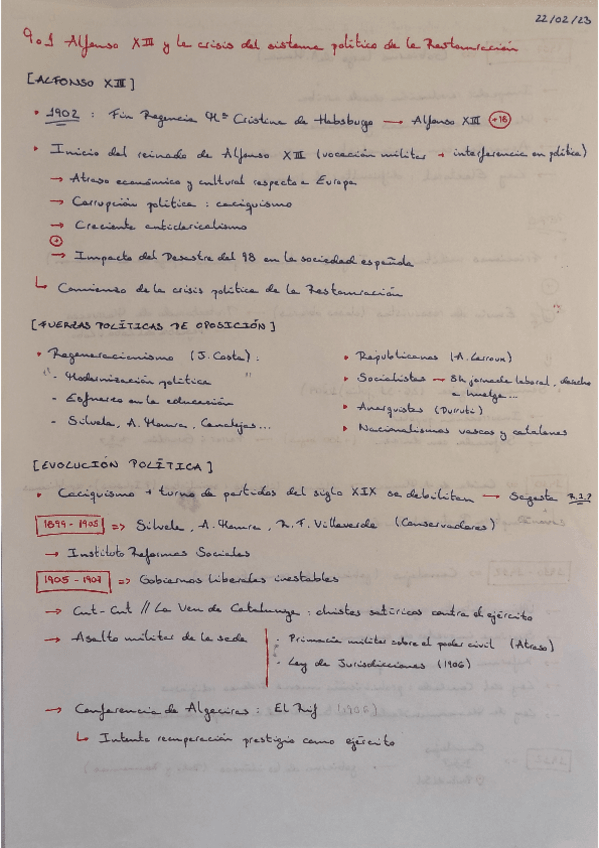 22/02/23
9.1 Alfonso XIII y la crisis del sistema político de la Restauración
[ALFONSO XIII]
• 1902 : Fin Regencia Mª Cristina de Habsburgo → Alfonso XIII +16
• Inicio del reinado de Alfonso XIII (vocación militar + interferencia en política)
→ Atraso económico y cultural respecto a Europa
→ Corrupción política : caciquismo
→ Creciente anticlericalismo
+
→ Impacto del Desastre del 98 en la sociedad española
↳ Comienzo de la crisis política de la Restauración
[FUERZAS POLÍTICAS DE OPOSICIÓN]
• Regeneracionismo (J. Costa) :
"- Modernización política "
- Esfuerzo en la educación
- Silvela, A. Maura, Canalejas...
• Republicanos (A. Lerroux)
• Socialistas → 8h jornada laboral, derecho
a huelga...
• Anarquistas (Durruti)
• Nacionalismos vascos y catalanes
[EVOLUCIÓN POLÍTICA]
• Caciquismo + turno de partidos del siglo XIX se debilitan → Sagasta
1899 - 1905 => Silvela, A. Maura, R. F. Villaverde (Conservadores)
→ Instituto Reformas Sociales
1905 - 1907 => Gobiernos liberales inestables
→ Cut-Cut // La Veu de Catalunya : chistes satíricos contra el ejército
→ Asalto militar de la sede
· Primacía militar sobre el poder civil (Atraso)
· Ley de Jurisdicciones (1906)
→ Conferencia de Algeciras : El Rif (1906)
↳ Intenta recuperación prestigio como ejército